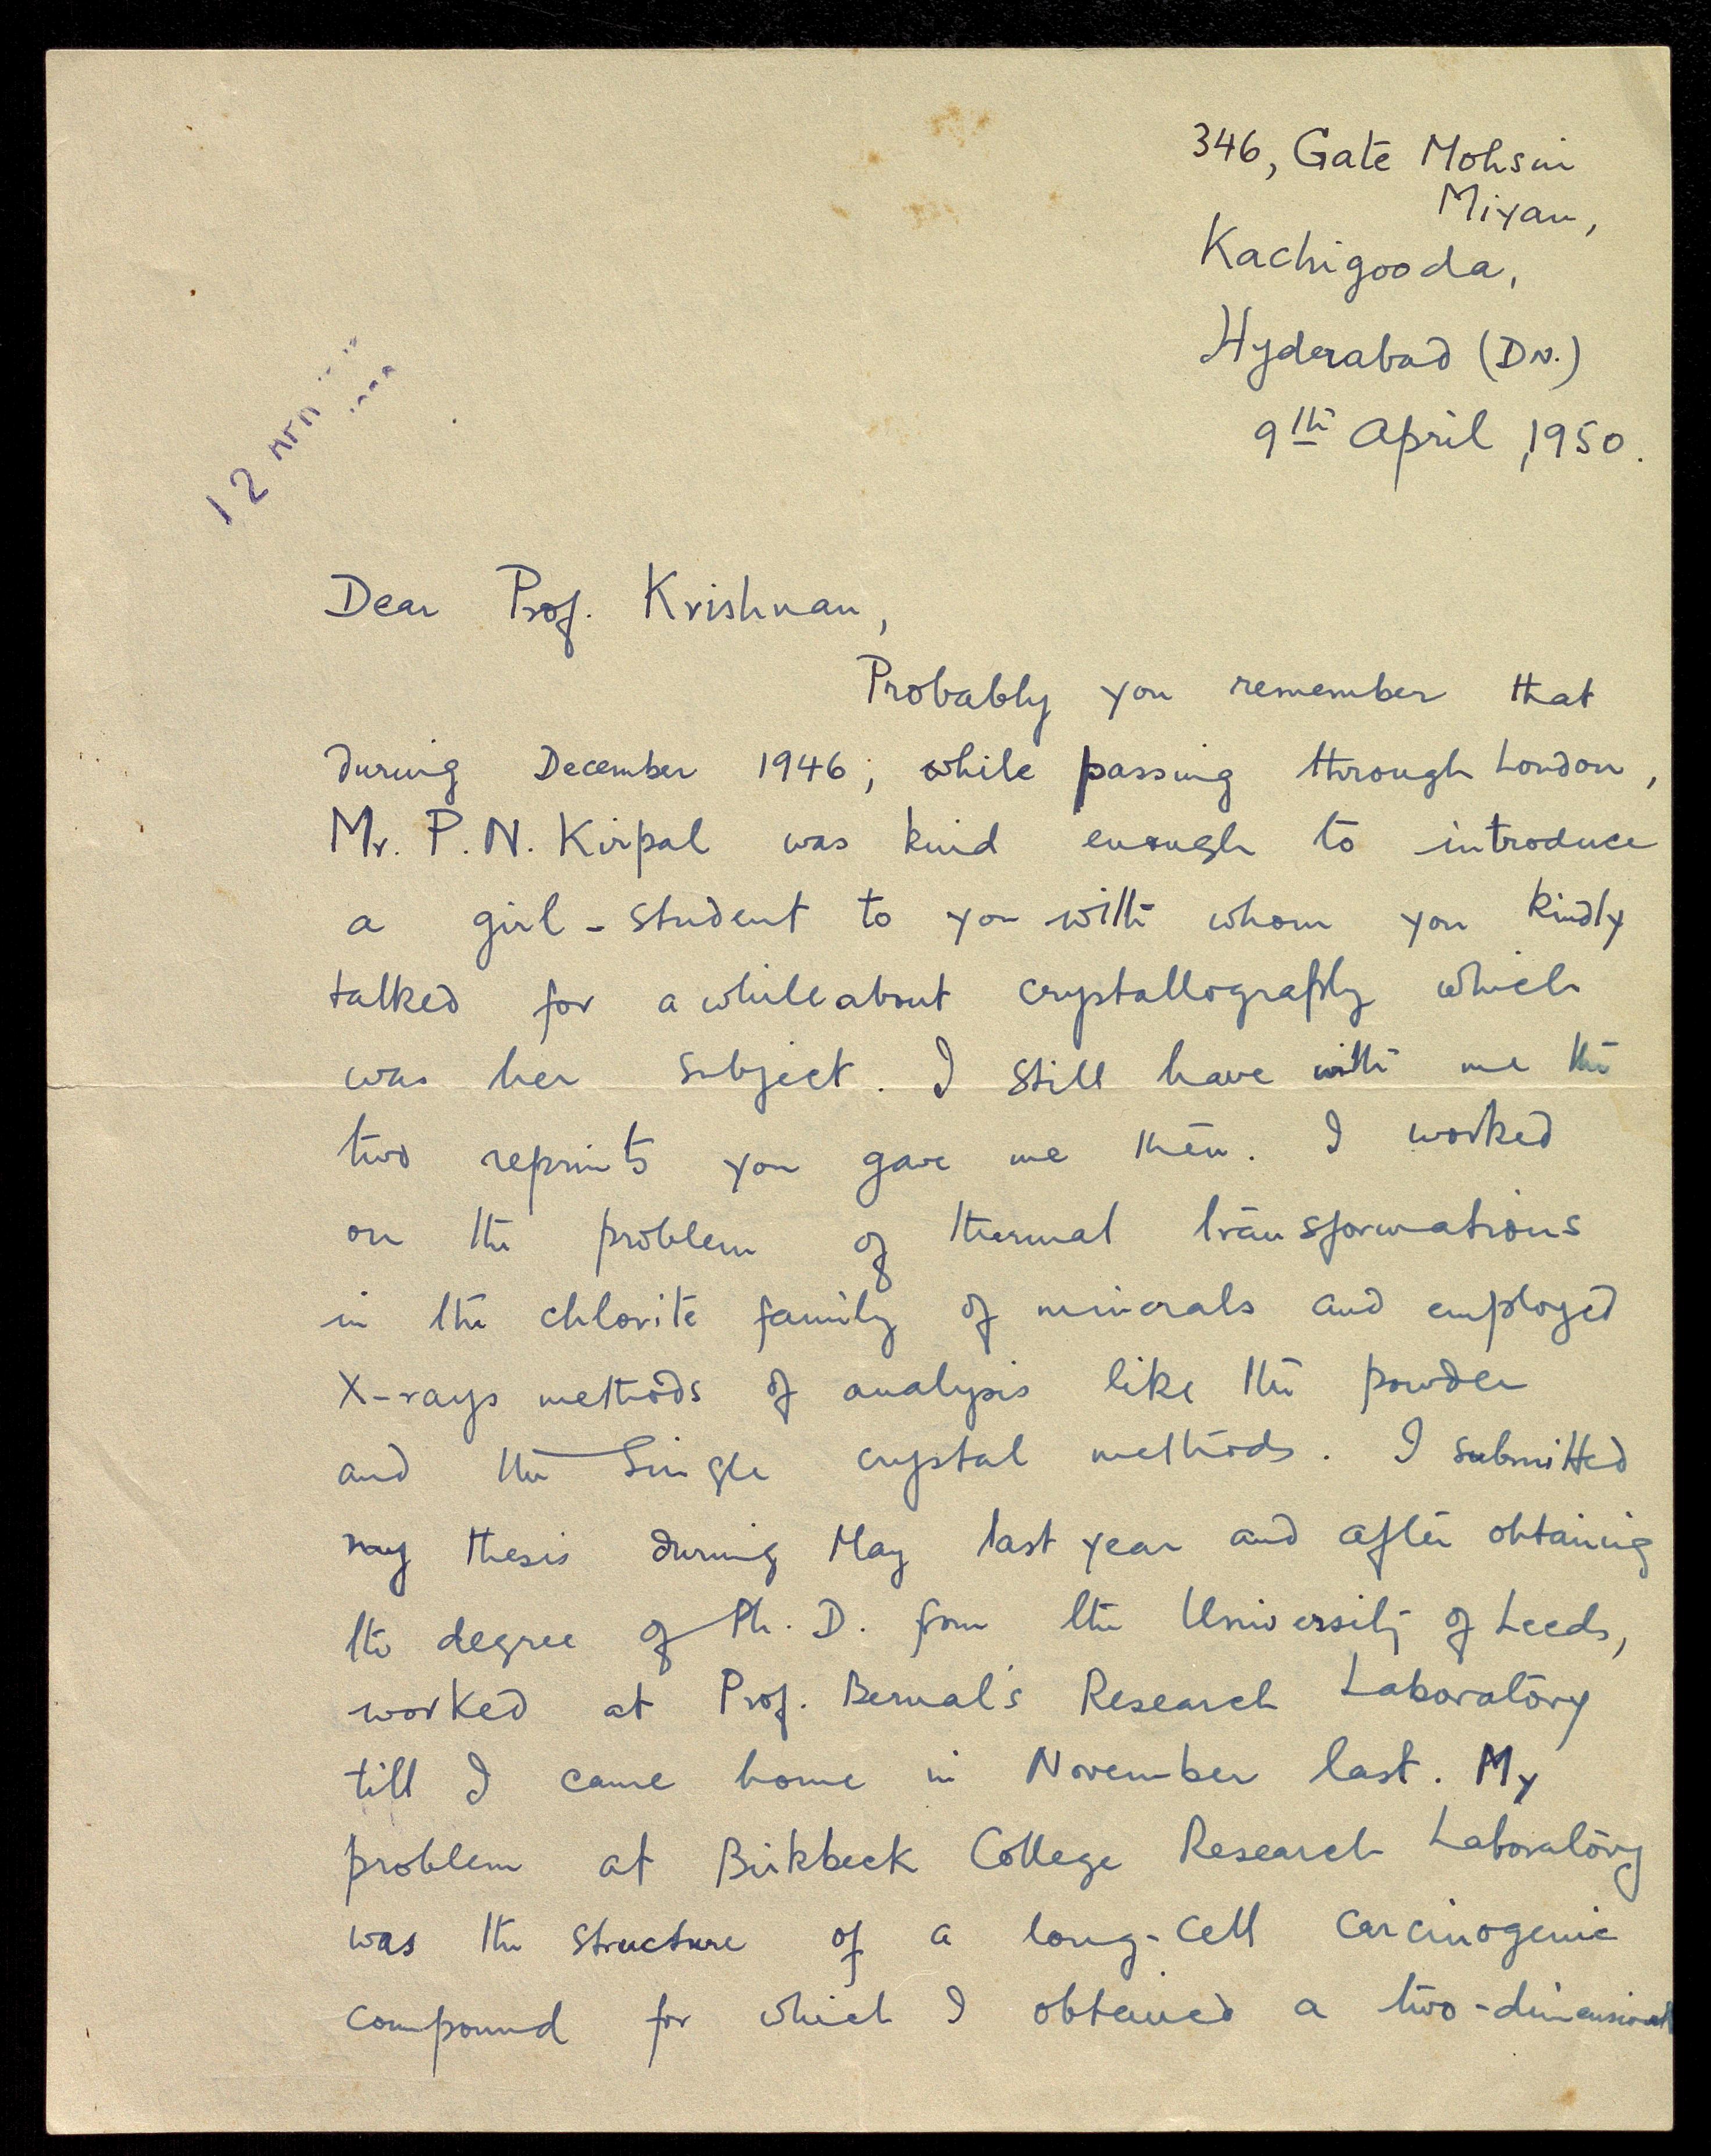 346, Gate Mohsin
Miyan,
Kachigooda,
Hyderabad (DN.)
9th April, 1950.
12
Dear Prof. Krishnan,
Probably you remember that
during December 1946; while passing through London,
Mr. P. N. Kirpal was kind enough to introduce
a girl-student to you with whom you kindly
talked for a while about crystallography which
was her subject. I still have with me the
two reprints you gave me then. I worked
on the problem of thermal transformations
in the chlorite family of minerals and employed
X-rays methods of analysis like the powder
and the single crystal methods. I submitted
my thesis during May last year and after obtaining
the degree of Ph. D. from the University of Leeds,
worked at Prof. Bernal's Research Laboratory
till I came home in November last. My
problem at Birkbeck College Research Laboratory
was the structure of a long-cell carcinogenic
compound for which I obtained a two-dimensional